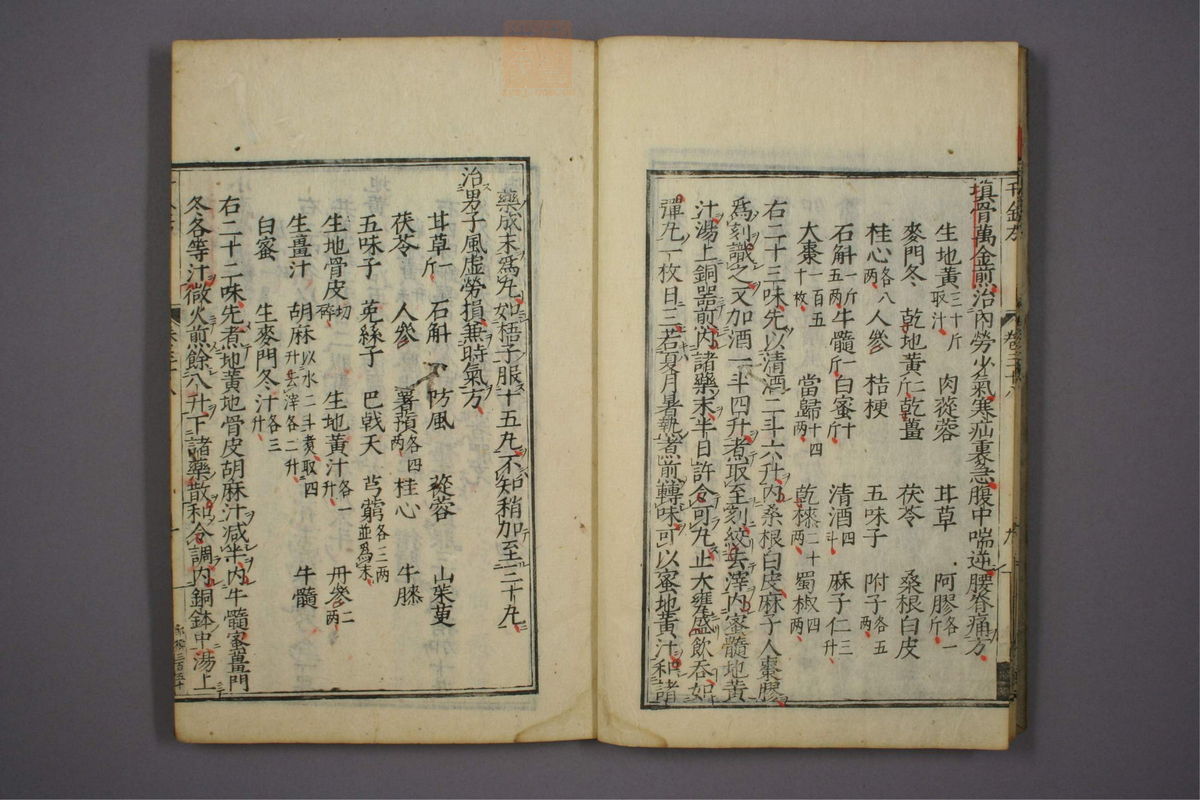 千金方 卷三十八 九
填骨萬金煎治內勞少氣寒疝裏急腹中喘逆腰脊痛方
生地黃三十斤取汁 肉蓯蓉 甘草 阿膠各一斤
麥門冬 乾地黃各一斤 乾薑 茯苓 桑根白皮
桂心各八兩 人參 桔梗 五味子 附子各五兩
石斛一斤五兩 牛髓一斤 白蜜十斤 清酒四斗 麻子仁三升
大棗一百五十枚 當歸十四兩 乾𣾰二十兩 蜀椒四兩
右二十三味先以清酒二斗六升內桑根白皮麻子人棗膠
爲刻識之又加酒一斗四升煮取至刻絞去滓內蜜髓地黃
汁湯上銅器煎內諸藥末半日許令可丸止大甕盛飲呑如
彈丸一枚日三若夏月暑熱煮煎轉味可以蜜地黃汁和諸
藥成末爲丸如梧子服十五丸不知稍加至三十丸
治男子風虛勞損兼時氣方
甘草一斤 石斛 防風 蓯蓉 山茱萸
茯苓 人參 薯蕷各四兩 桂心 牛膝
五味子 菟絲子 巴戟天 芎藭各三兩並爲末
生地骨皮切碎 生地黃汁各一升 丹參二兩
生薑汁 胡麻以水二斗煮取四升去滓各二升 牛髓
白蜜 生麥門冬汁各三升
右二十二味先煮地黃地骨皮胡麻汁減半內牛髓蜜薑門
冬各等汁微火煎餘八升下諸藥散和令調內銅鉢中湯上